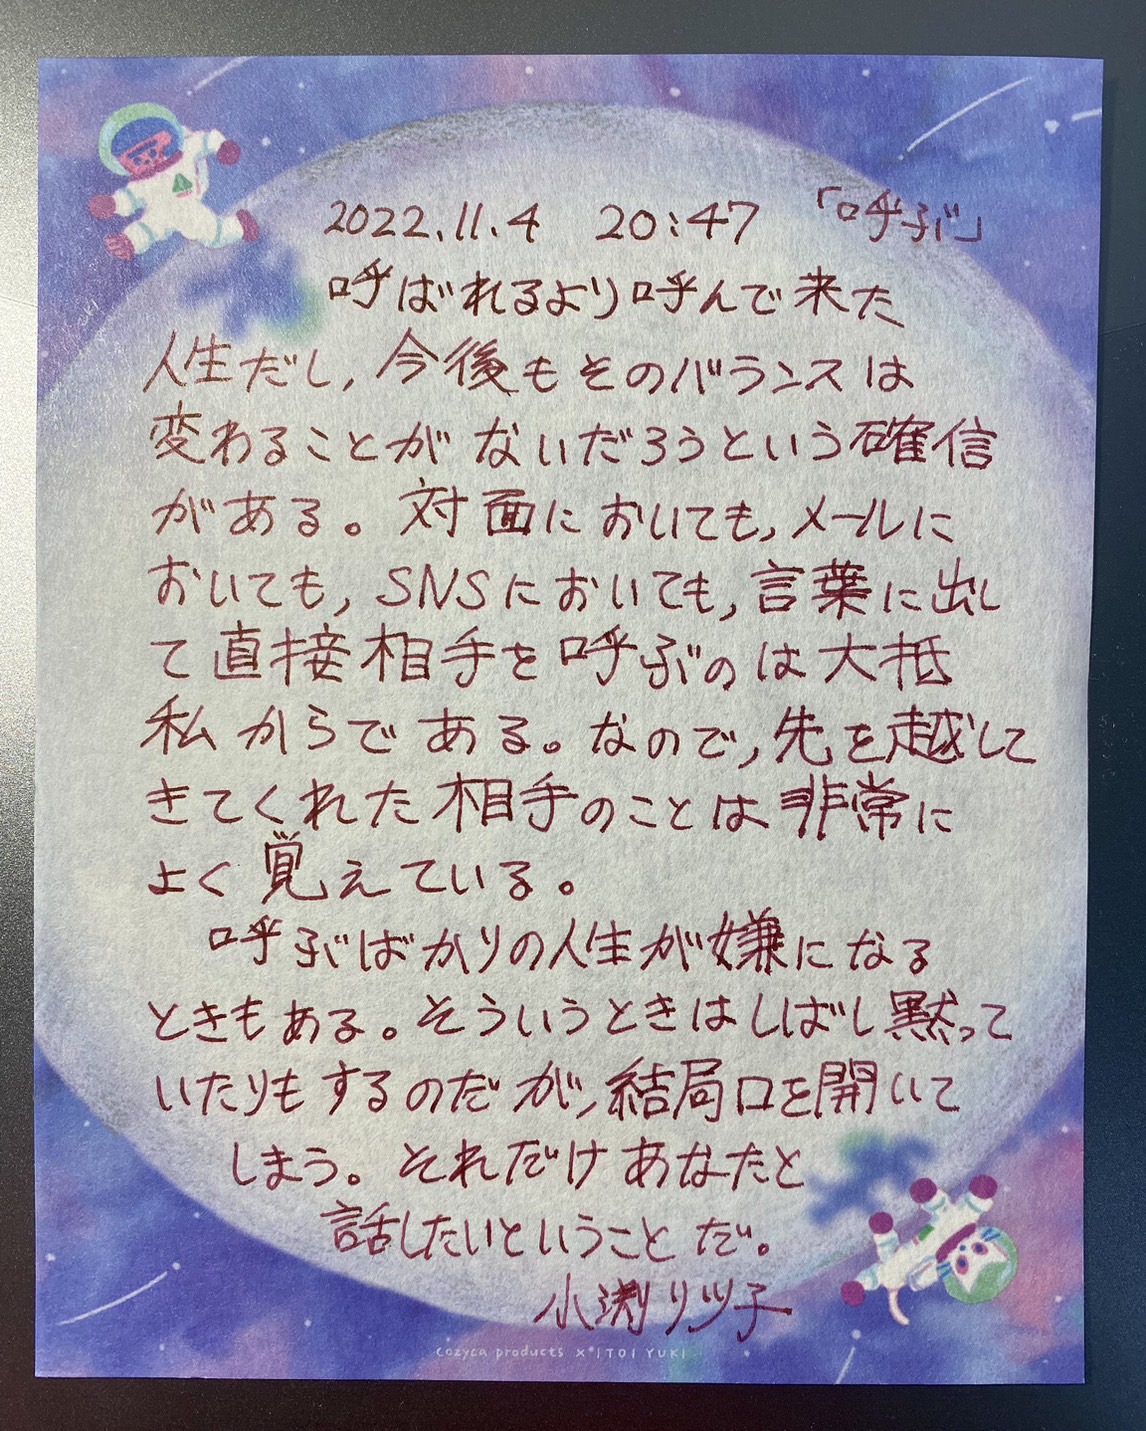 2022.11.4 20:47 「呼ぶ」
呼ばれるより呼んで来た
人生だし,今後もそのバランスは
変わることがないだろうという確信
がある。対面においても,メールに
おいても,SNSにおいても,言葉に出し
て直接相手を呼ぶのは大抵
私からである。なので,先を越して
きてくれた相手のことは非常に
よく覚えている。
呼ぶばかりの人生が嫌になる
ときもある。そういうときはしばし黙って
いたりもするのだが,結局口を開いて
しまう。それだけあなたと
話したいということだ。
小渕リツ子
cozyca products × ITOI YUKI